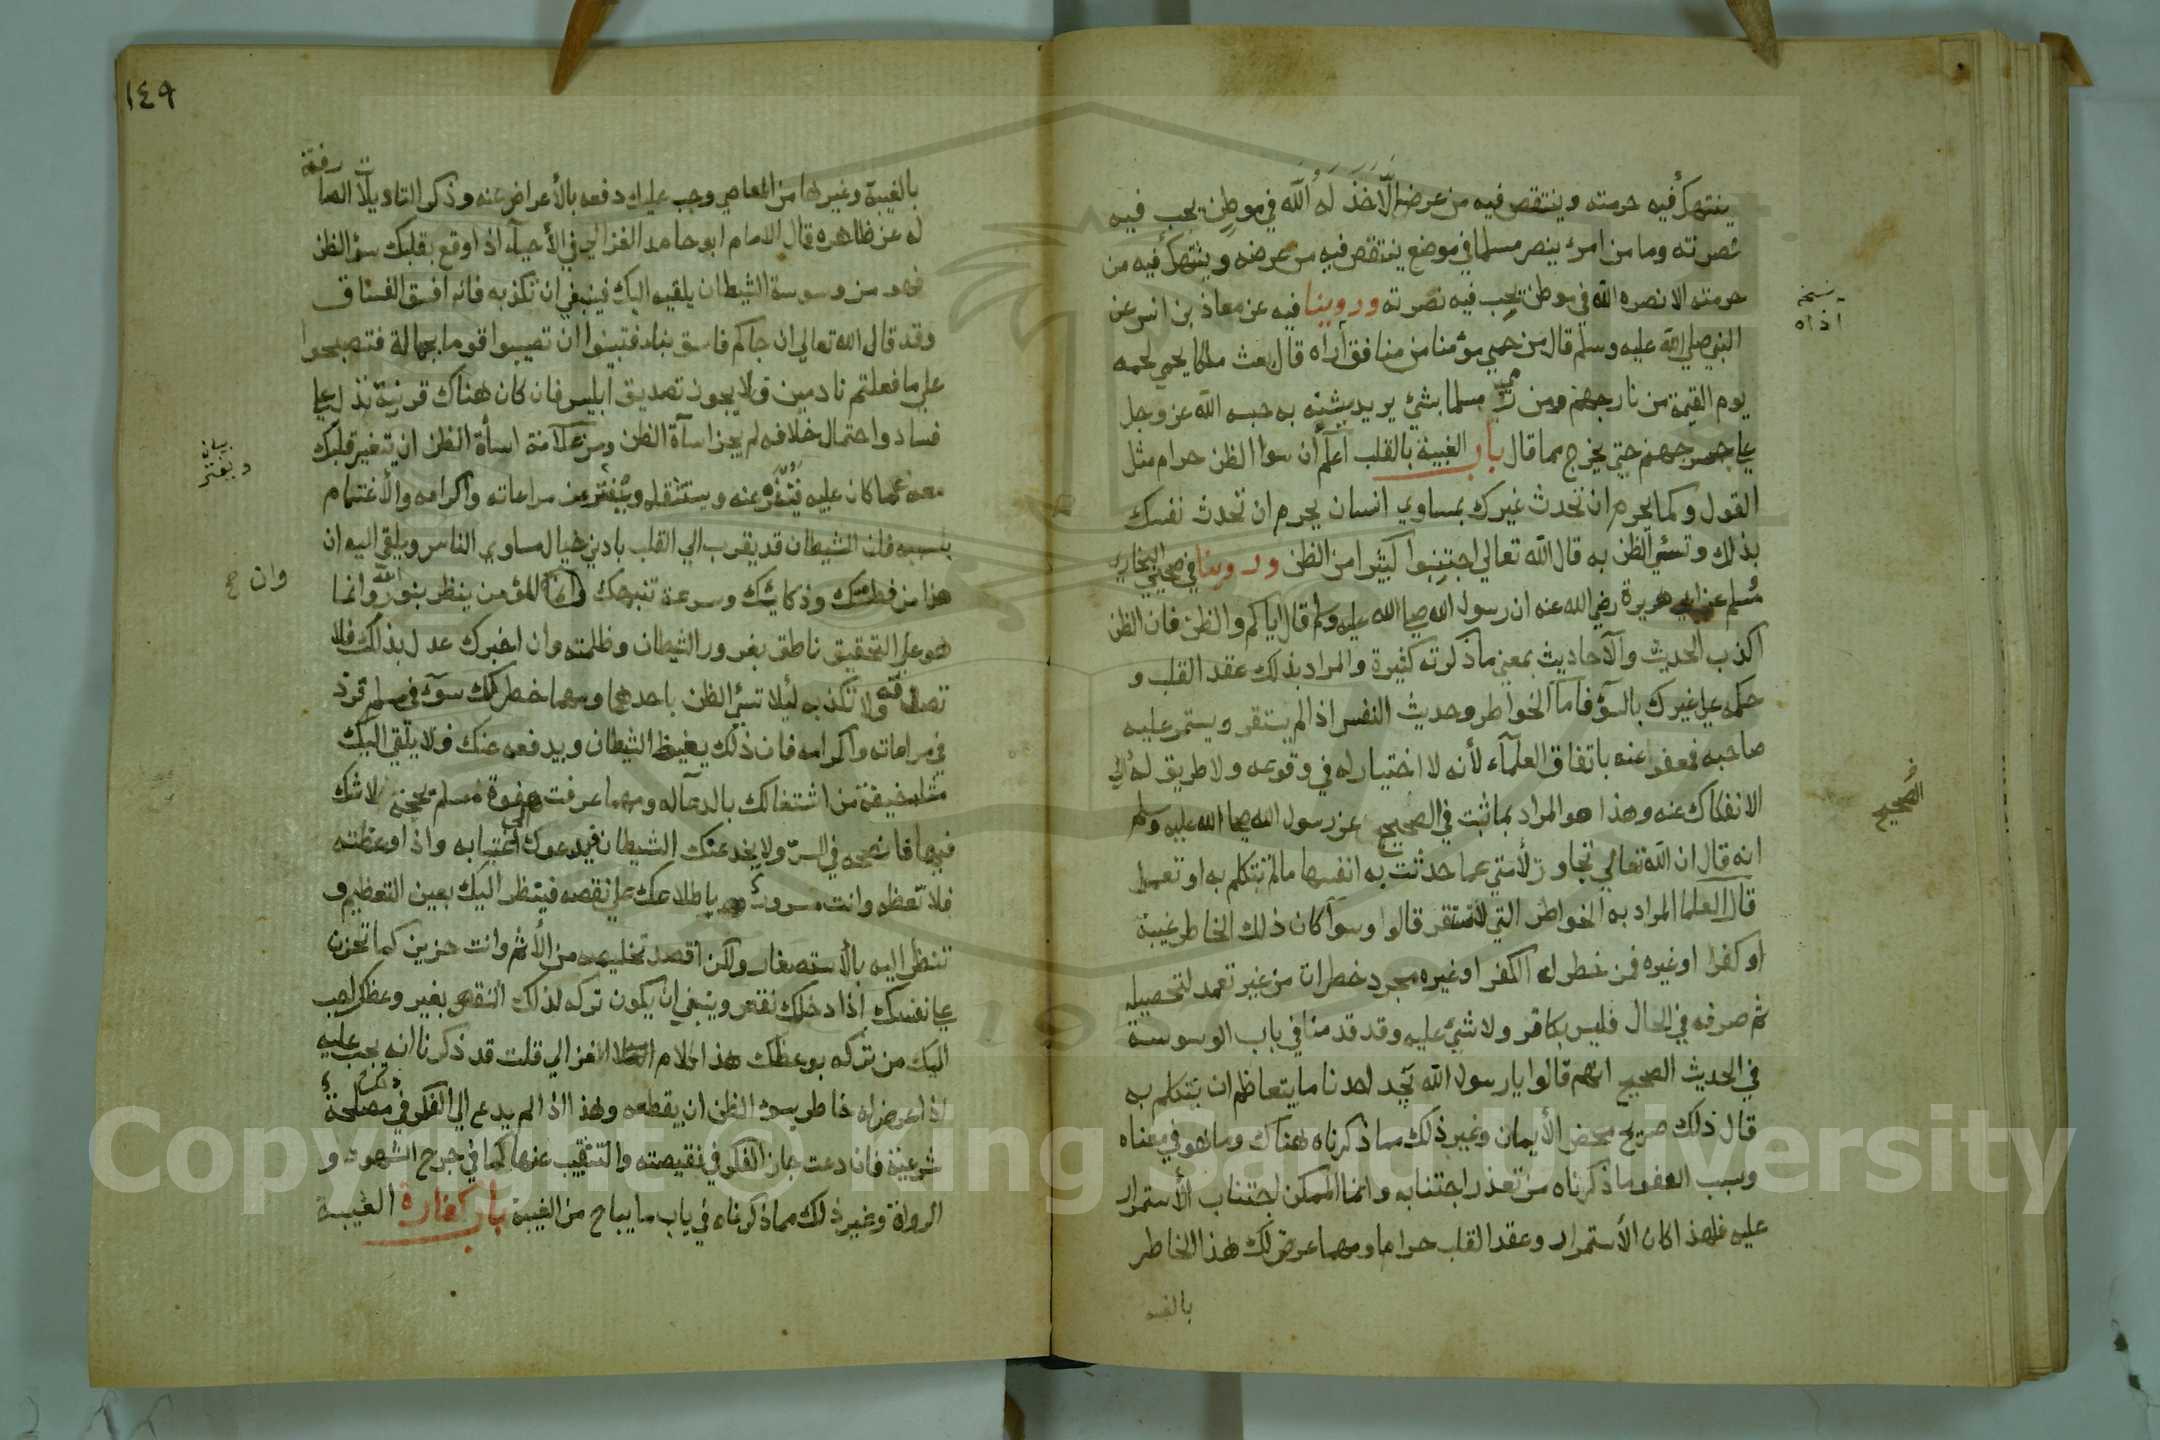 ينتهك فيه حرمته وينتقص فيه من عرضه الا خذله الله في موطن يحب فيه
نصرته وما من امرئ ينصر مسلما في موضع ينتقص فيه من عرضه وينتهك فيه من
حرمته الا نصره الله في موطن يحب فيه نصرته وروينا فيه عن معاذ بن انس عن
النبي صلى الله عليه وسلم قال من حمي مؤمنا من منافق أراه قال بعث ملكا يحمي لحمه
يوم القيمة من نار جهنم ومن مسلما بشئ يريد شينه به حبسه الله عز وجل
علي جسر جهنم حتي يخرج مما قال باب الغيبة بالقلب أعلم أن سوا الظن حرام مثل
القول وكما يحرم ان تحدث غيرك بمساوي انسان يحرم ان تحدث نفسك
بذلك وتسئ الظن به قال الله تعالي اجتنبوا كثيرا من الظن وروينا في صحيحي البخاري
مسلم عن ابي هريرة رضي الله عنه ان رسول الله صلي الله عليه وسلم قال اياكم والظن فان الظن
اكذب الحديث والآحاديث بمعني ما ذكرته كثيرة والمراد بذلك عقد القلب و
حكمه علي غيرك بالسؤ فاما الخواطر وحديث النفس اذا لم يستقر ويستمر عليه
صاحبه فمعفوا عنه باتفاق العلمآء لأنه لا اختيار له في وقوعه ولا طريق له الي
الانفكاك عنه وهذا هو المراد بما ثبت في الصحيح عن رسول الله صلي الله عليه وسلم
انه قال ان الله تعالي تجاوز لأمتي عما حدثت به انفسها ما لم تتكلم به او تعمل
قال العلما المراد به الخواطر التي لا تستقر قالوا وسوآ كان ذلك الخاطر غيبة
او كفرا او غيره فمن خطر له الكفر او غيره مجرد خطرات من غير تعمد لتحصيله
ثم صرفه في الحال فليس بكافر ولا شئ عليه وقد قدمنا في باب الوسوسة
في الحديث الصحيح انهم قالوا يارسول الله يجد احدنا ما يتعاظم ان يتكلم به
قال ذلك صريح محض الأيمان وغير ذلك مما ذكرناه هناك وما هو في معناه
وسبب العفو ما ذكرناه من تعذر اجتنابه وانما الممكن اجتناب الأستمرار
عليه فلهذا كان الأستمرار وعقد القلب حراما ومهما عرض لك هذا الخاطر
بالغيبة
نسخة
اذاه
الصحيح
١٤٩
بالغيبة وغيرها من المعاصي وجب عليك دفعه بالأعراض عنه وذكر التاويلات الصارفة
له عن ظاهره قال الامام ابو حامد الغزالي في الأحيآء اذا وقع بقلبك سؤ الظن
فهو من وسوسة الشيطان يلقيه اليك فينبغي ان تكذبه فانه افسق الفساق
وقد قال الله تعالي ان جاكم فاسق بنبأ فتبينوا ان تصيبوا قوما بجهالة فتصبحوا
علي ما فعلتم نادمين فلا يجوز تصديق ابليس فان كان هناك قرينة تدل علي
فساد واحتمل خلافه لم يجز اسآة الظن ومن علامة اسأة الظن ان يتغير قلبك
معه عما كان عليه فتنفر عنه ويستثقله ويفتر عن مراعاته واكرامه والأغتمام
بسببه فان الشيطان قد يقرب الي القلب بادني خيال مساوي الناس ويلقي اليه ان
هذا من فطنتك وذكايئك وسرعة تنبهك وان المؤمن ينظر بنور الله وانما
هو علي التحقيق ناطق بغرور الشيطان وظلمته وان اخبرك عدل بذلك فلا
تصدقه ولا تكذبه لئلا تسئ الظن باحدهما ومهما خطر لك سوء في مسلم فزد
في مراعاته واكرامه فان ذلك يغيظ الشيطان ويدفعه عنك فلا يلقي اليك
مثله خيفة من اشتغالك بالدعآ له ومهما عرفت هفوة مسلم بحجة لا شك
فيها فانصحه في السر ولا يخدعنك الشيطان فيدعوك الي اغتيابه واذا وعظته
فلا تعظه وانت مسرور باطلاعك علي نقصه فينظر اليك بعين التعظيم و
تنظر اليه بالأستصغار ولكن اقصد تخليصه من الأثم وانت حزين كما تحزن
علي نفسك اذا دخلك نقص وينبغي ان يكون تركه لذلك النقص بغير وعظك احب
اليك من تركه بوعظك هذا كلام الغزالي قلت قد ذكرنا انه يجب عليه
اذا عرض له خاطر بسوء الظن ان يقطعه وهذا اذا لم يدع الي الفكر في ذلك مصلحة
شرعية فان دعت جاز الفكر في نقيصته والتنقيب عنها كما في جرح الشهود و
الرواة وغير ذلك مما ذكرناه في باب ما يباح من الغيبة باب كفارة الغيبة
ويفتر
وان صح